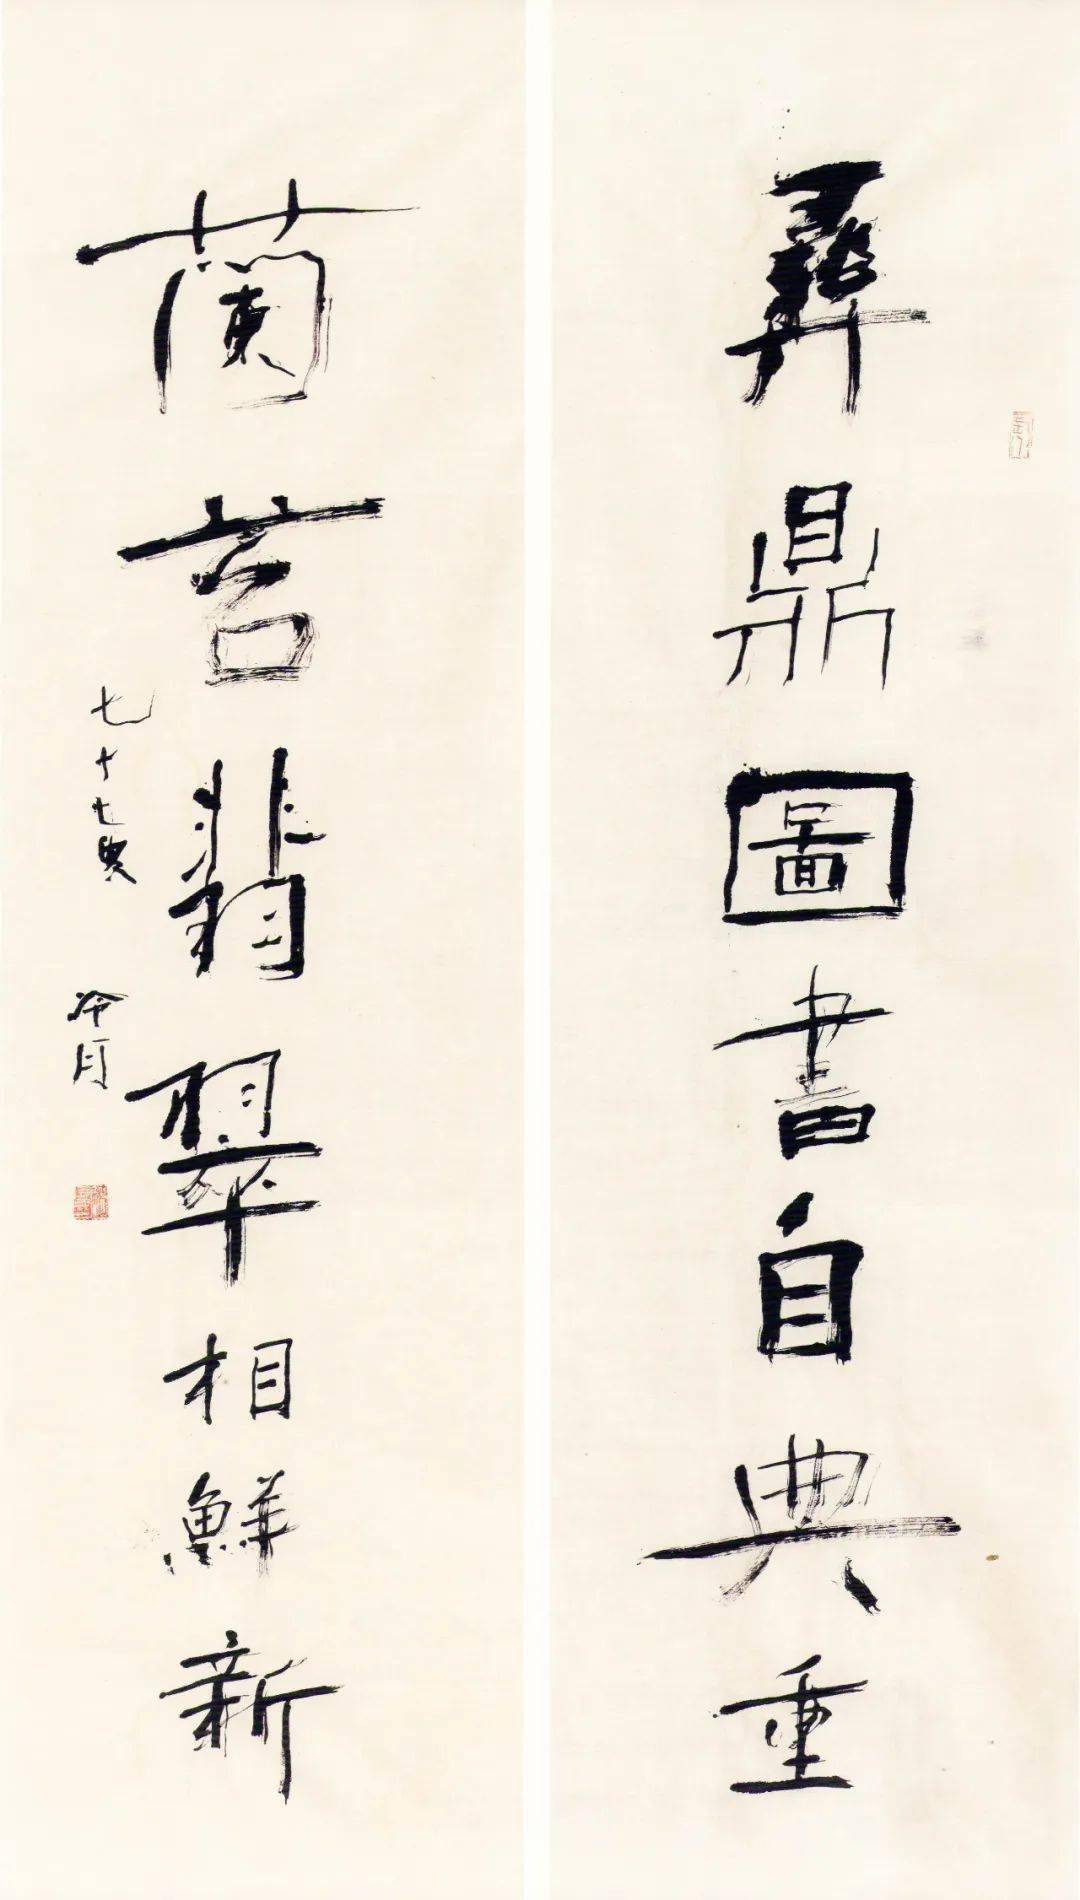 彝鼎圖書自典重
蘭苕翡翠相鮮新
七十七叟
冷月